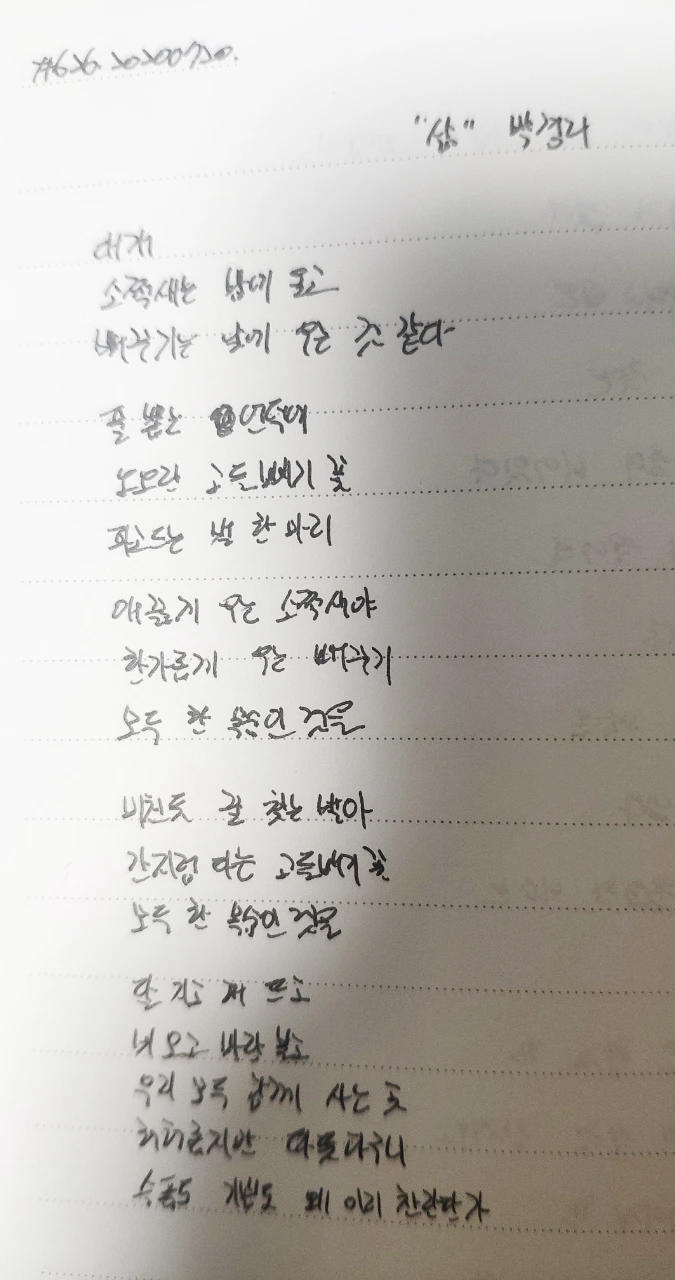 #626. 20200720.
"삶" 박경리
대개
소쩍새는 밤에 울고
뻐꾸기는 낮에 우는 것 같다
풀 뽑는 언덕에
노오란 고들빼기 꽃
파고드는 벌 한 마리
애끓게 우는 소쩍새야
한가롭게 우는 뻐꾸기
모두 한 목숨인 것을
미친듯 꿀 찾는 벌아
간지럼 타는 고들빼기 꽃
모두 한 목숨인 것을
달 지고 해 뜨고
비 오고 바람 불고
우리 모두 함께 사는 곳
허허롭지만 따뜻하구나
슬픔도 기쁨도 왜 이리 찬란한가